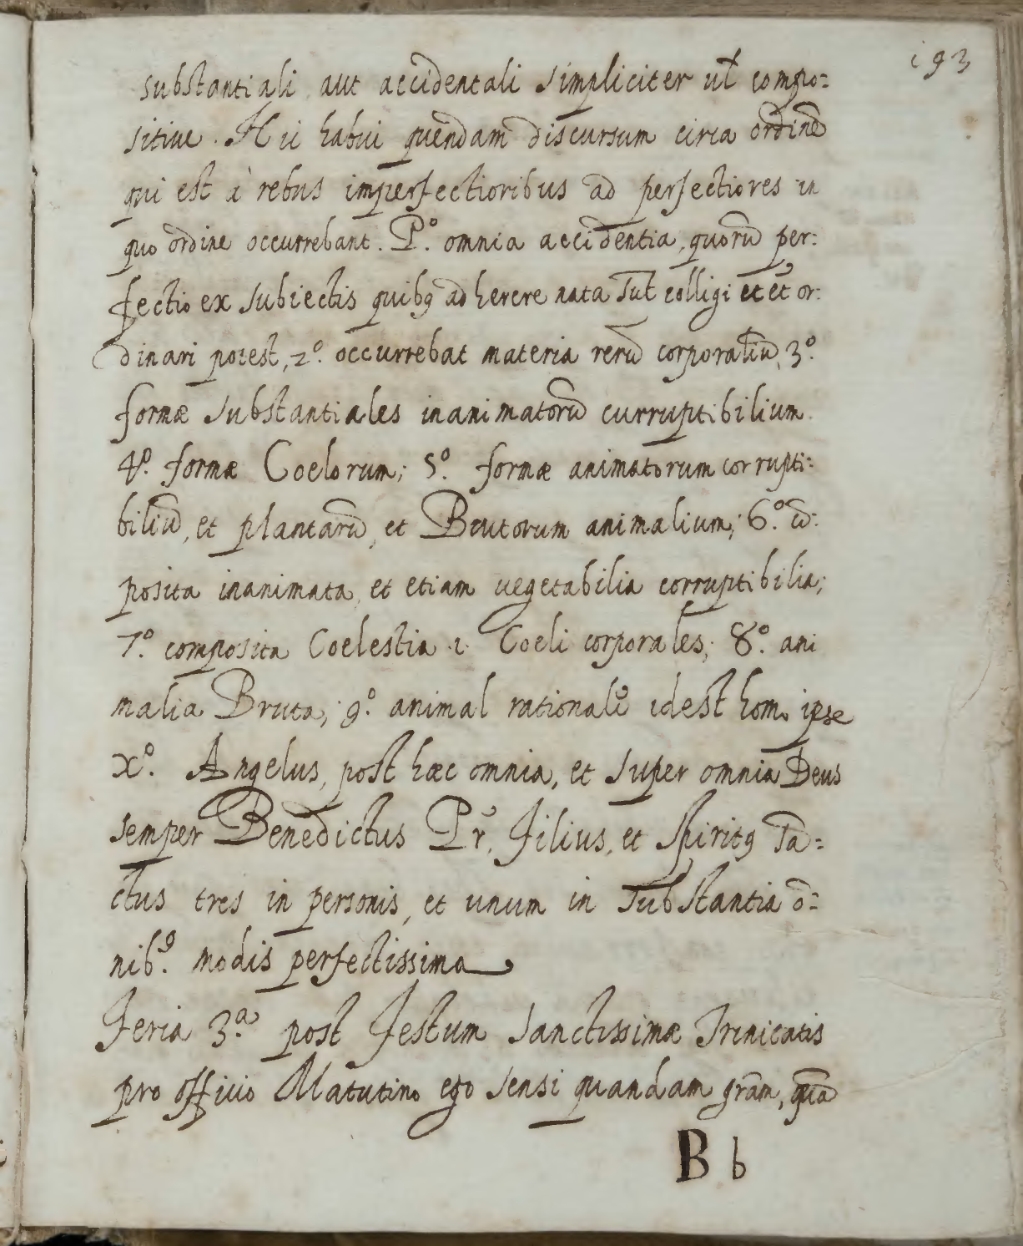 193
substantiali, aut accidentali simpliciter ul̃ compo:
sitiue. Hii habui quendam discursum circa ordinẽ
qui est à rebus imperfectioribus ad perfectiores in
quo ordine occurrebant. P.º omnia accidentia, quorũ per:
fectio ex subiectis quibꝯ adherere nata sũt colligi et ẽt or:
dinari potest, 2.º occurrebat materia rerũ corporaliũ, 3.º
formæ substantiales inanimatorũ curruptibilium.
4.º formæ Coelorum; 5.º formæ animatorum corrupti:
biliũ, et plantarũ, et Brutorum animalium; 6.º cõ:
posita inanimata, et etiam vegetabilia corruptibilia;
7.º composita Coelestia .i. Coeli corporales; 8.º ani
malia Bruta; 9.º animal rationale idest homo ipse
xº. Angelus, post hæc omnia, et super omnia Deus
semper Benedictus Pr̃, Filius, et Spiritꝯ Sã:
ctus tres in personis, et unum in substantia õ:
nibꝯ. modis perfectissima
Feria 3.ª post Festum Sanctissimæ Trinitatis
pro officio Matutino ego sensi quandam grãm, quã
B b